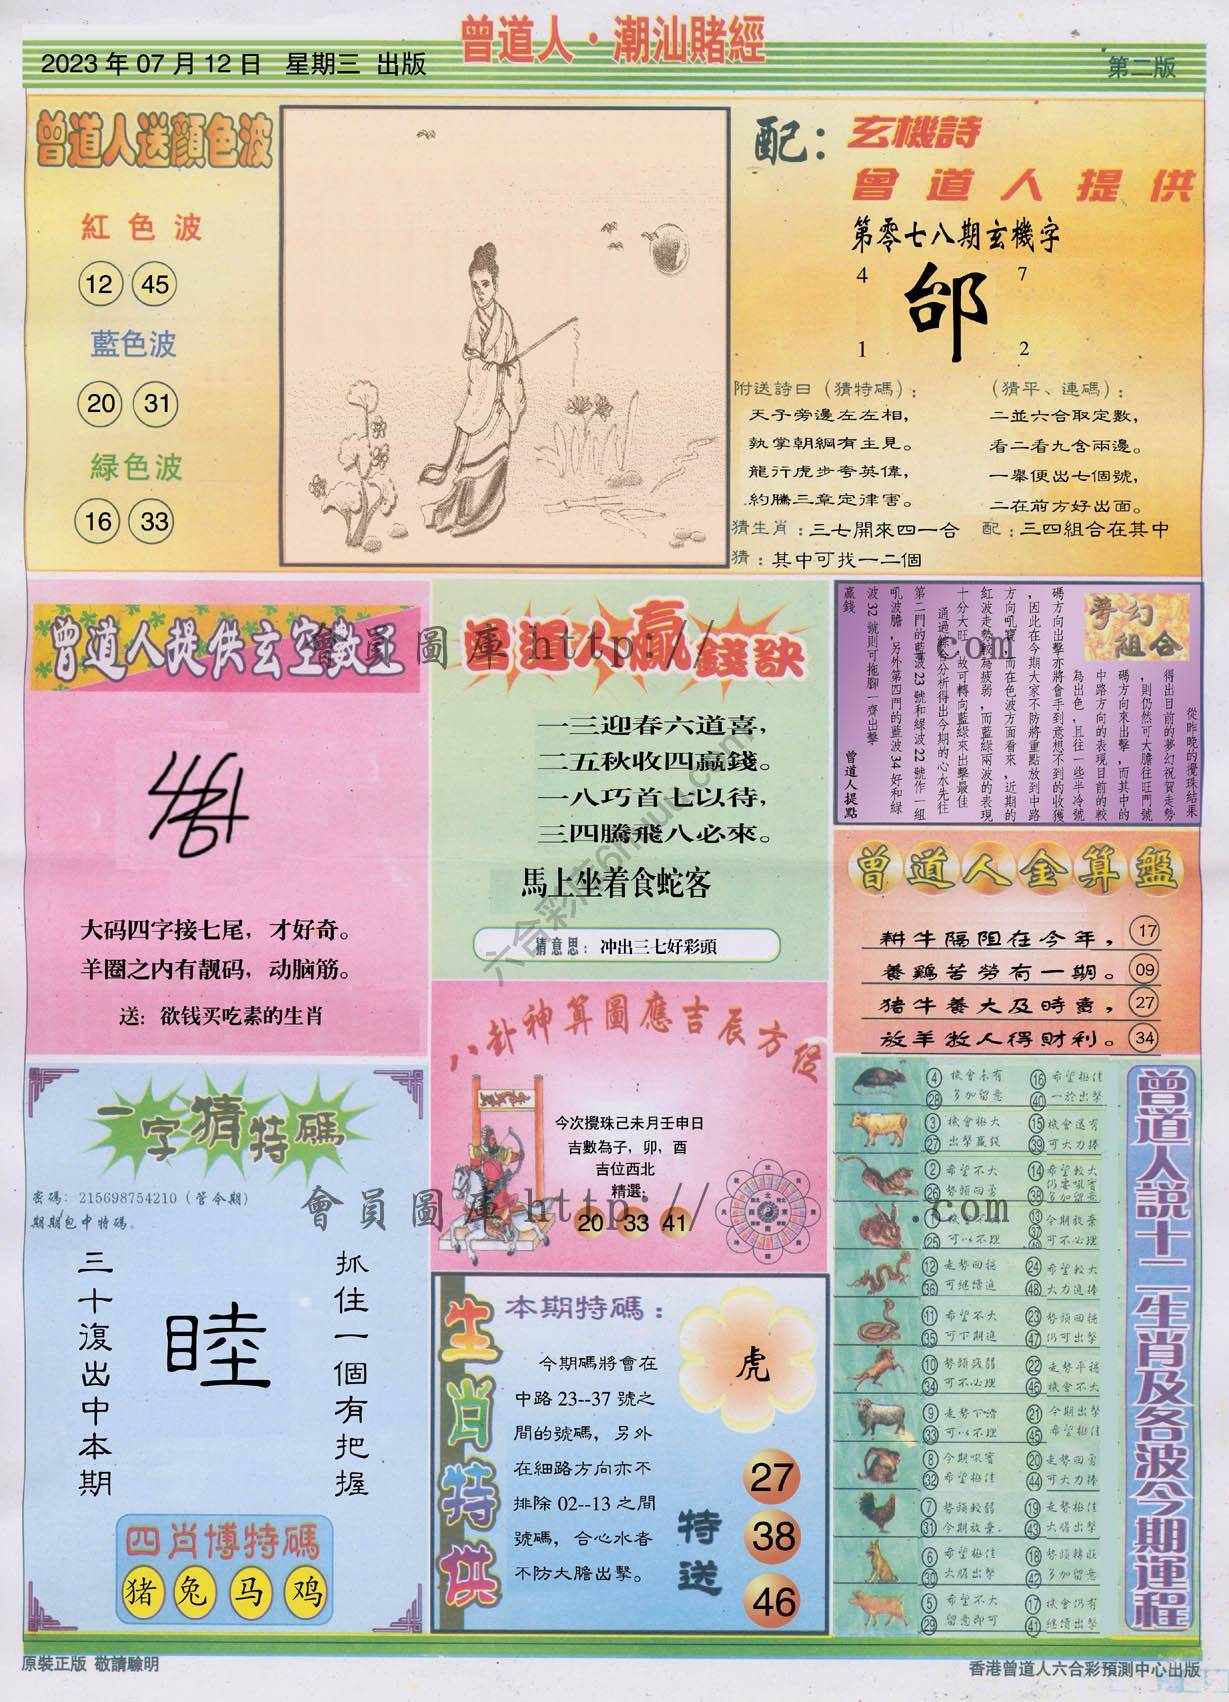 曾道人·潮汕賭經
2023 年 07 月 12 日 星期三 出版
第二版
曾道人送顏色波
紅色波
12 45
藍色波
20 31
緑色波
16 33
配：玄機詩
曾道人提供
第零七八期玄機字
4 7
邰
1 2
附送詩曰（猜特碼）：
天子旁邊左左相，
執掌朝綱有主見。
龍行虎步夸英偉，
約騰三章定律害。
（猜平、連碼）：
二並六合取定數，
看二看九含兩邊。
一舉便出七個號，
二在前方好出面。
猜生肖：三七開來四一合
配：三四組合在其中
猜：其中可找一二個
曾道人提供玄空數王
大码四字接七尾，才好奇。
羊圈之内有靓码，动脑筋。
送：欲钱买吃素的生肖
曾道人贏錢訣
一三迎春六道喜，
二五秋收四赢錢。
一八巧首七以待，
三四騰飛八必來。
馬上坐着食蛇客
猜意思：冲出三七好彩頭
夢幻組合
從昨晚的攪珠結果
得出目前的夢幻祝賀走勢
，則仍然可大膽往旺門號
碼方向來出擊，而其中的
中路方向的表現目前的較
為出色，且往一些半冷號
碼方向出擊亦將會手到意想不到的收獲
，因此在今期大家不防將重點放到中路
方向吼寶，而在色波方面看來，近期的
紅波走勢較為疲弱，而藍綠兩波的表現
十分大旺，故可轉向藍綠來出擊最佳
通過綜合分析得出今期的心水先往
第二門的藍波 23 號和绿波 22 號作一組
吼波膽，另外第四門的藍波 34 好和綠
波 32 號則可拖腳一齊出擊
贏錢
曾道人提點
曾道人金算盤
耕牛隔阻在今年， 17
養鷄苦勞有一期。 09
猪牛養大及時賣， 27
放羊牧人得財利。 34
八卦神算圖應吉辰方位
今次攪珠己未月壬申日
吉數為子，卯，酉
吉位西北
精選：
20 33 41
一字猜特碼
密碼：215698754210（管今期）
期期包中特碼。
抓住一個有把握
睦
三十復出中本期
四肖博特碼
猪 兔 马 鸡
生肖特供
本期特碼：
今期碼將會在
中路 23--37 號之
間的號碼，另外
在細路方向亦不
排除 02--13 之間
號碼，合心水者
不防大膽出擊。
虎
特送
27
38
46
曾道人説十二生肖及各波今期運程
4 28 機會未有 多加留意 16 40 希望極佳 一於出擊
3 27 機會極大 出擊贏錢 15 39 機會還有 可大力捧
2 26 希望不大 勢頭回勇 14 38 希望較大 仍要吼實 多加留意
25 可以不理 13 37 今期放棄 可不必理
12 36 走勢回穩 可繼續進 24 48 希望較大 大力進捧
11 35 希望不大 可下期進 23 47 勢頭回穩 仍可出擊
10 34 勢頭疲弱 可不必理 22 46 走勢平穩 機會不大
9 33 走勢下滑 可以不理 21 45 今期出擊 希望極佳
8 32 今期吼實 希望極佳 20 44 走勢回勇 可大力捧
7 31 勢頭較弱 今期放棄. 19 43 走勢極佳 大膽出擊
6 30 希望極佳 大膽出擊 18 42 勢頭轉旺 多加留意
5 29 希望不大 留意即可 17 41 機會仍有 繼續出擊
會員圖庫 http:// .com
會員圖庫 http:// .com
原裝正版 敬請驗明
香港曾道人六合彩預測中心出版